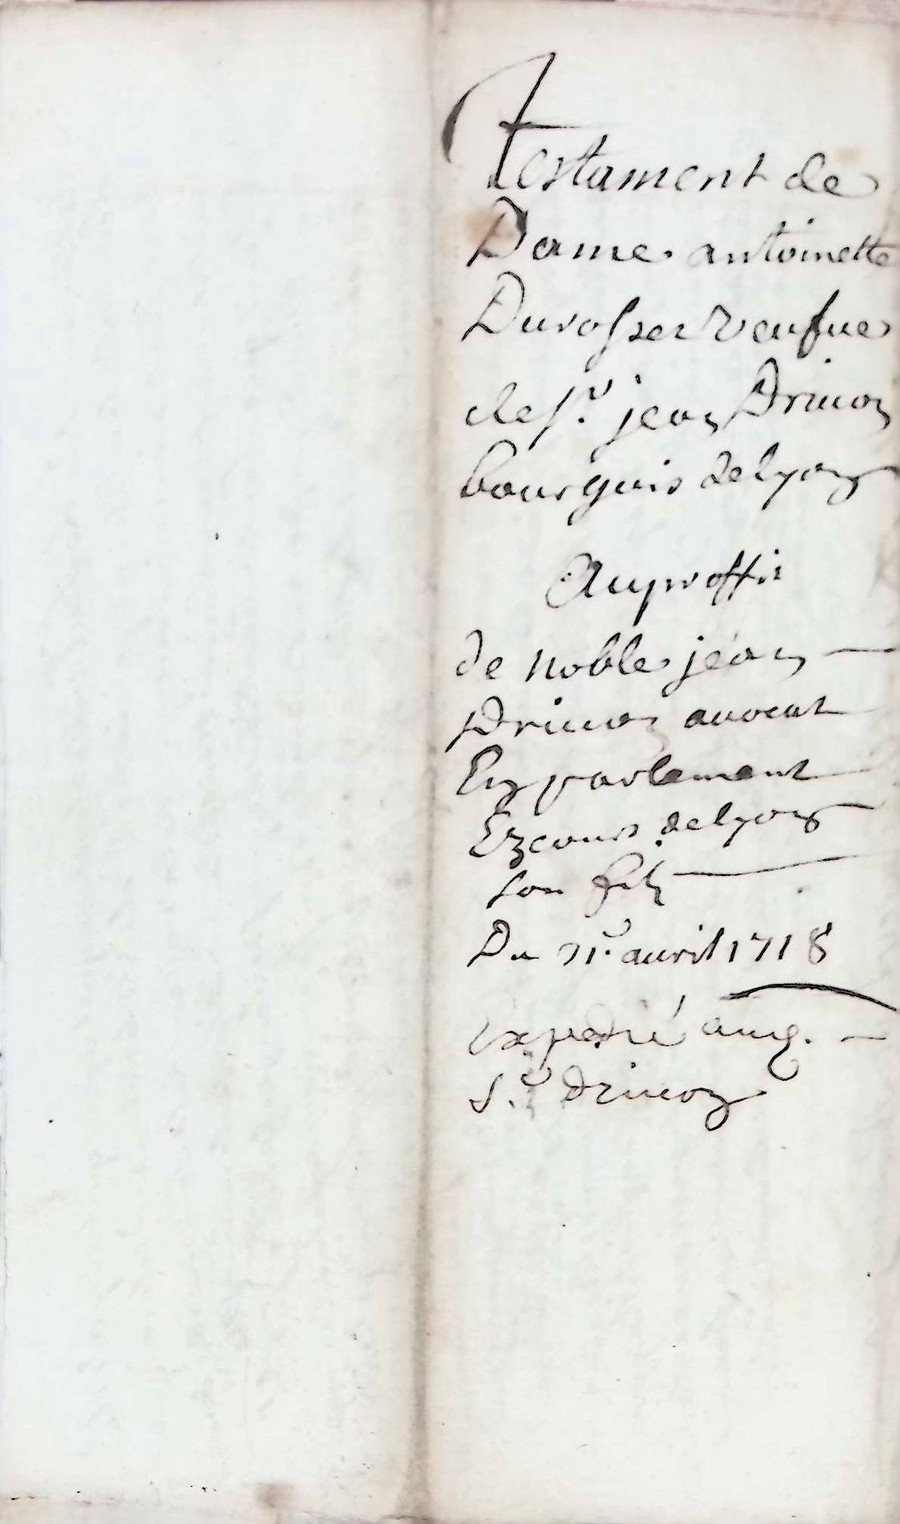 Testament de
Dame antoinette
Durosser veufue
de Sr. jean Drivon
bourgois de lyon
Au proffit
de noble jean
Drivon avocat
En parlement
Ez cours de lyon
son filz
Du avril 1718
Expedié aud.
Sr. Drivon